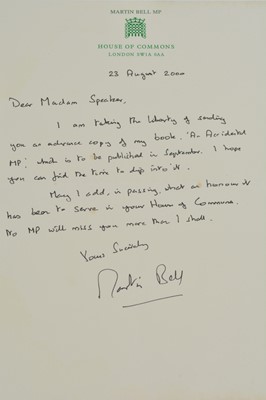 MARTIN BELL MP
HOUSE OF COMMONS
LONDON SW1A 0AA
23 August 2000
Dear Madam Speaker,
I am taking the liberty of sending
you an advance copy of my book, 'An Accidental
MP', which is to be published in September. I hope
you can find the time to dip into it.
May I add, in passing, what an honour it
has been to serve in your House of Commons.
No MP will miss you more than I shall.
Yours Sincerely
Martin Bell